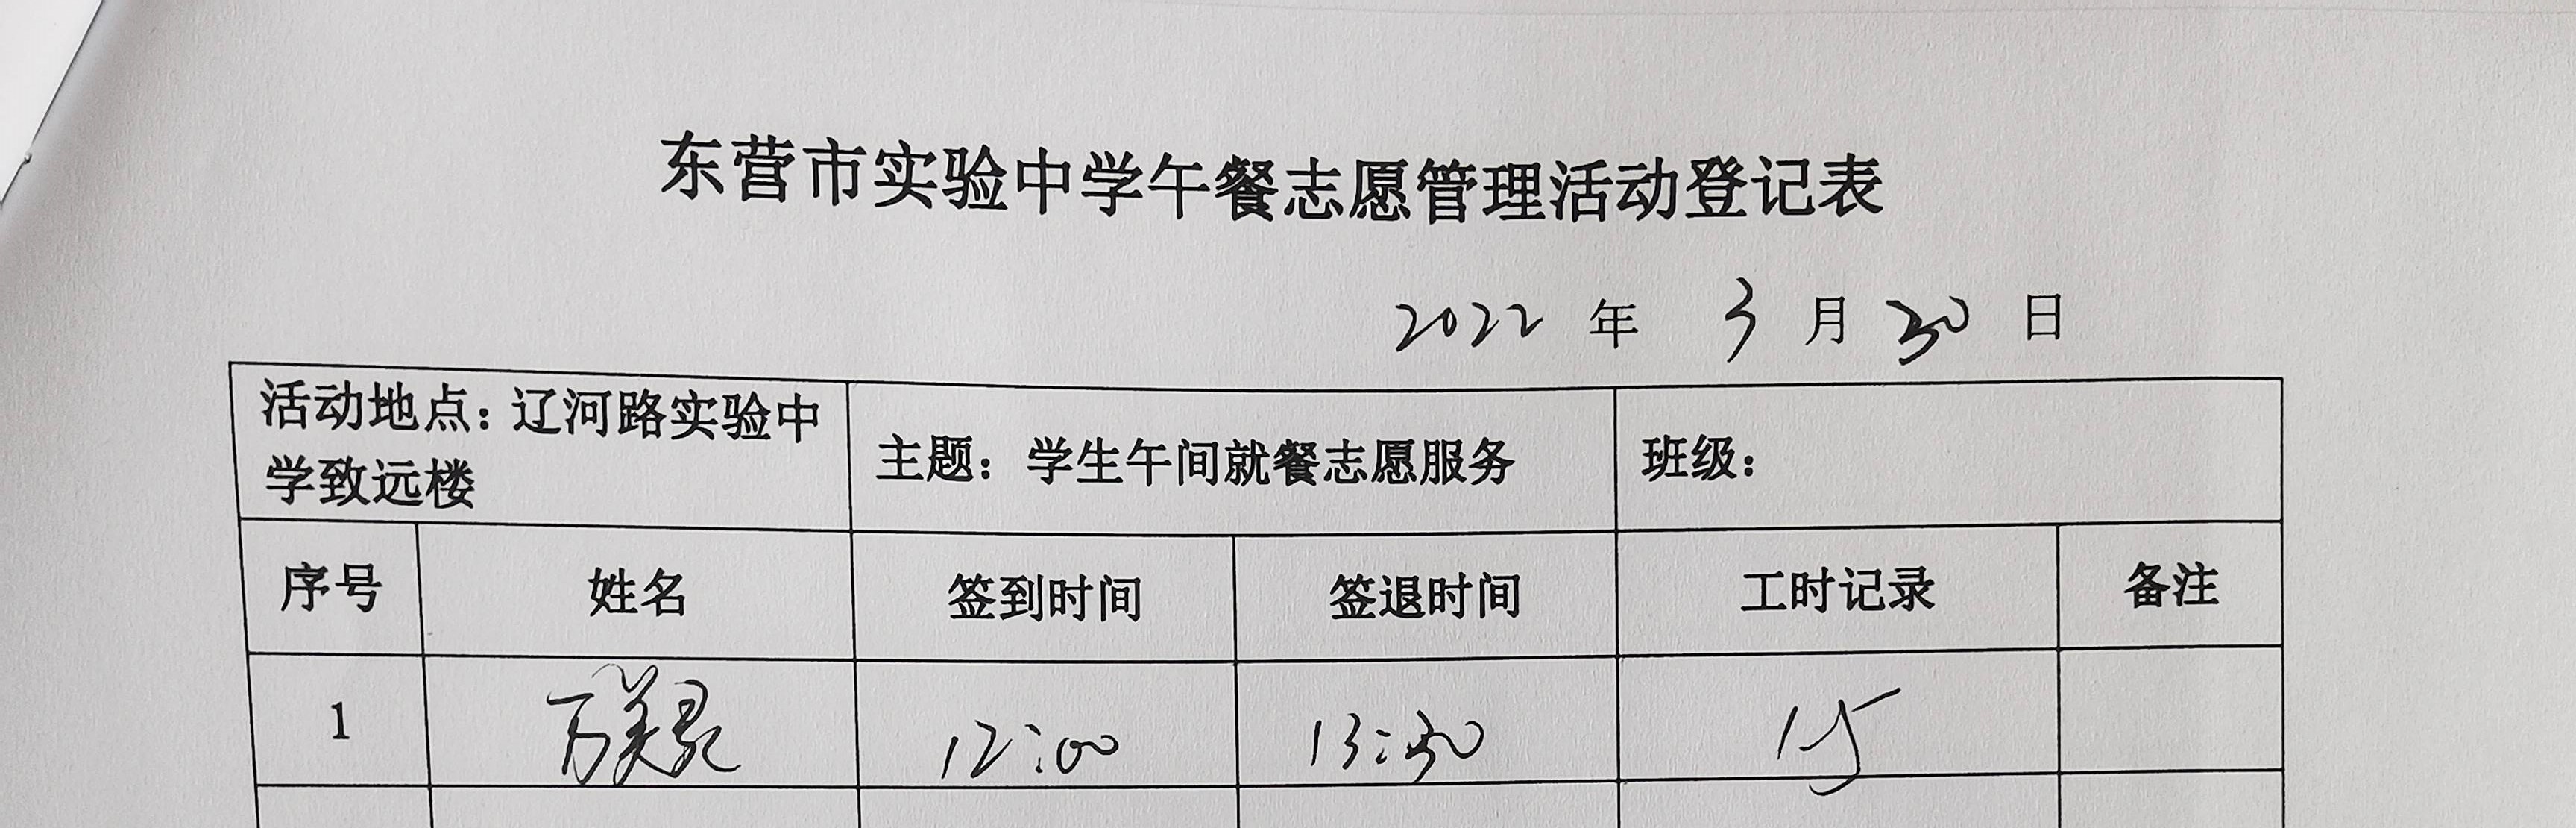 东营市实验中学午餐志愿管理活动登记表
2022 年 3 月 30 日
活动地点：辽河路实验中
学致远楼
主题：学生午间就餐志愿服务
班级：
序号 姓名 签到时间 签退时间 工时记录 备注
1 万美 12:00 13:30 1.5